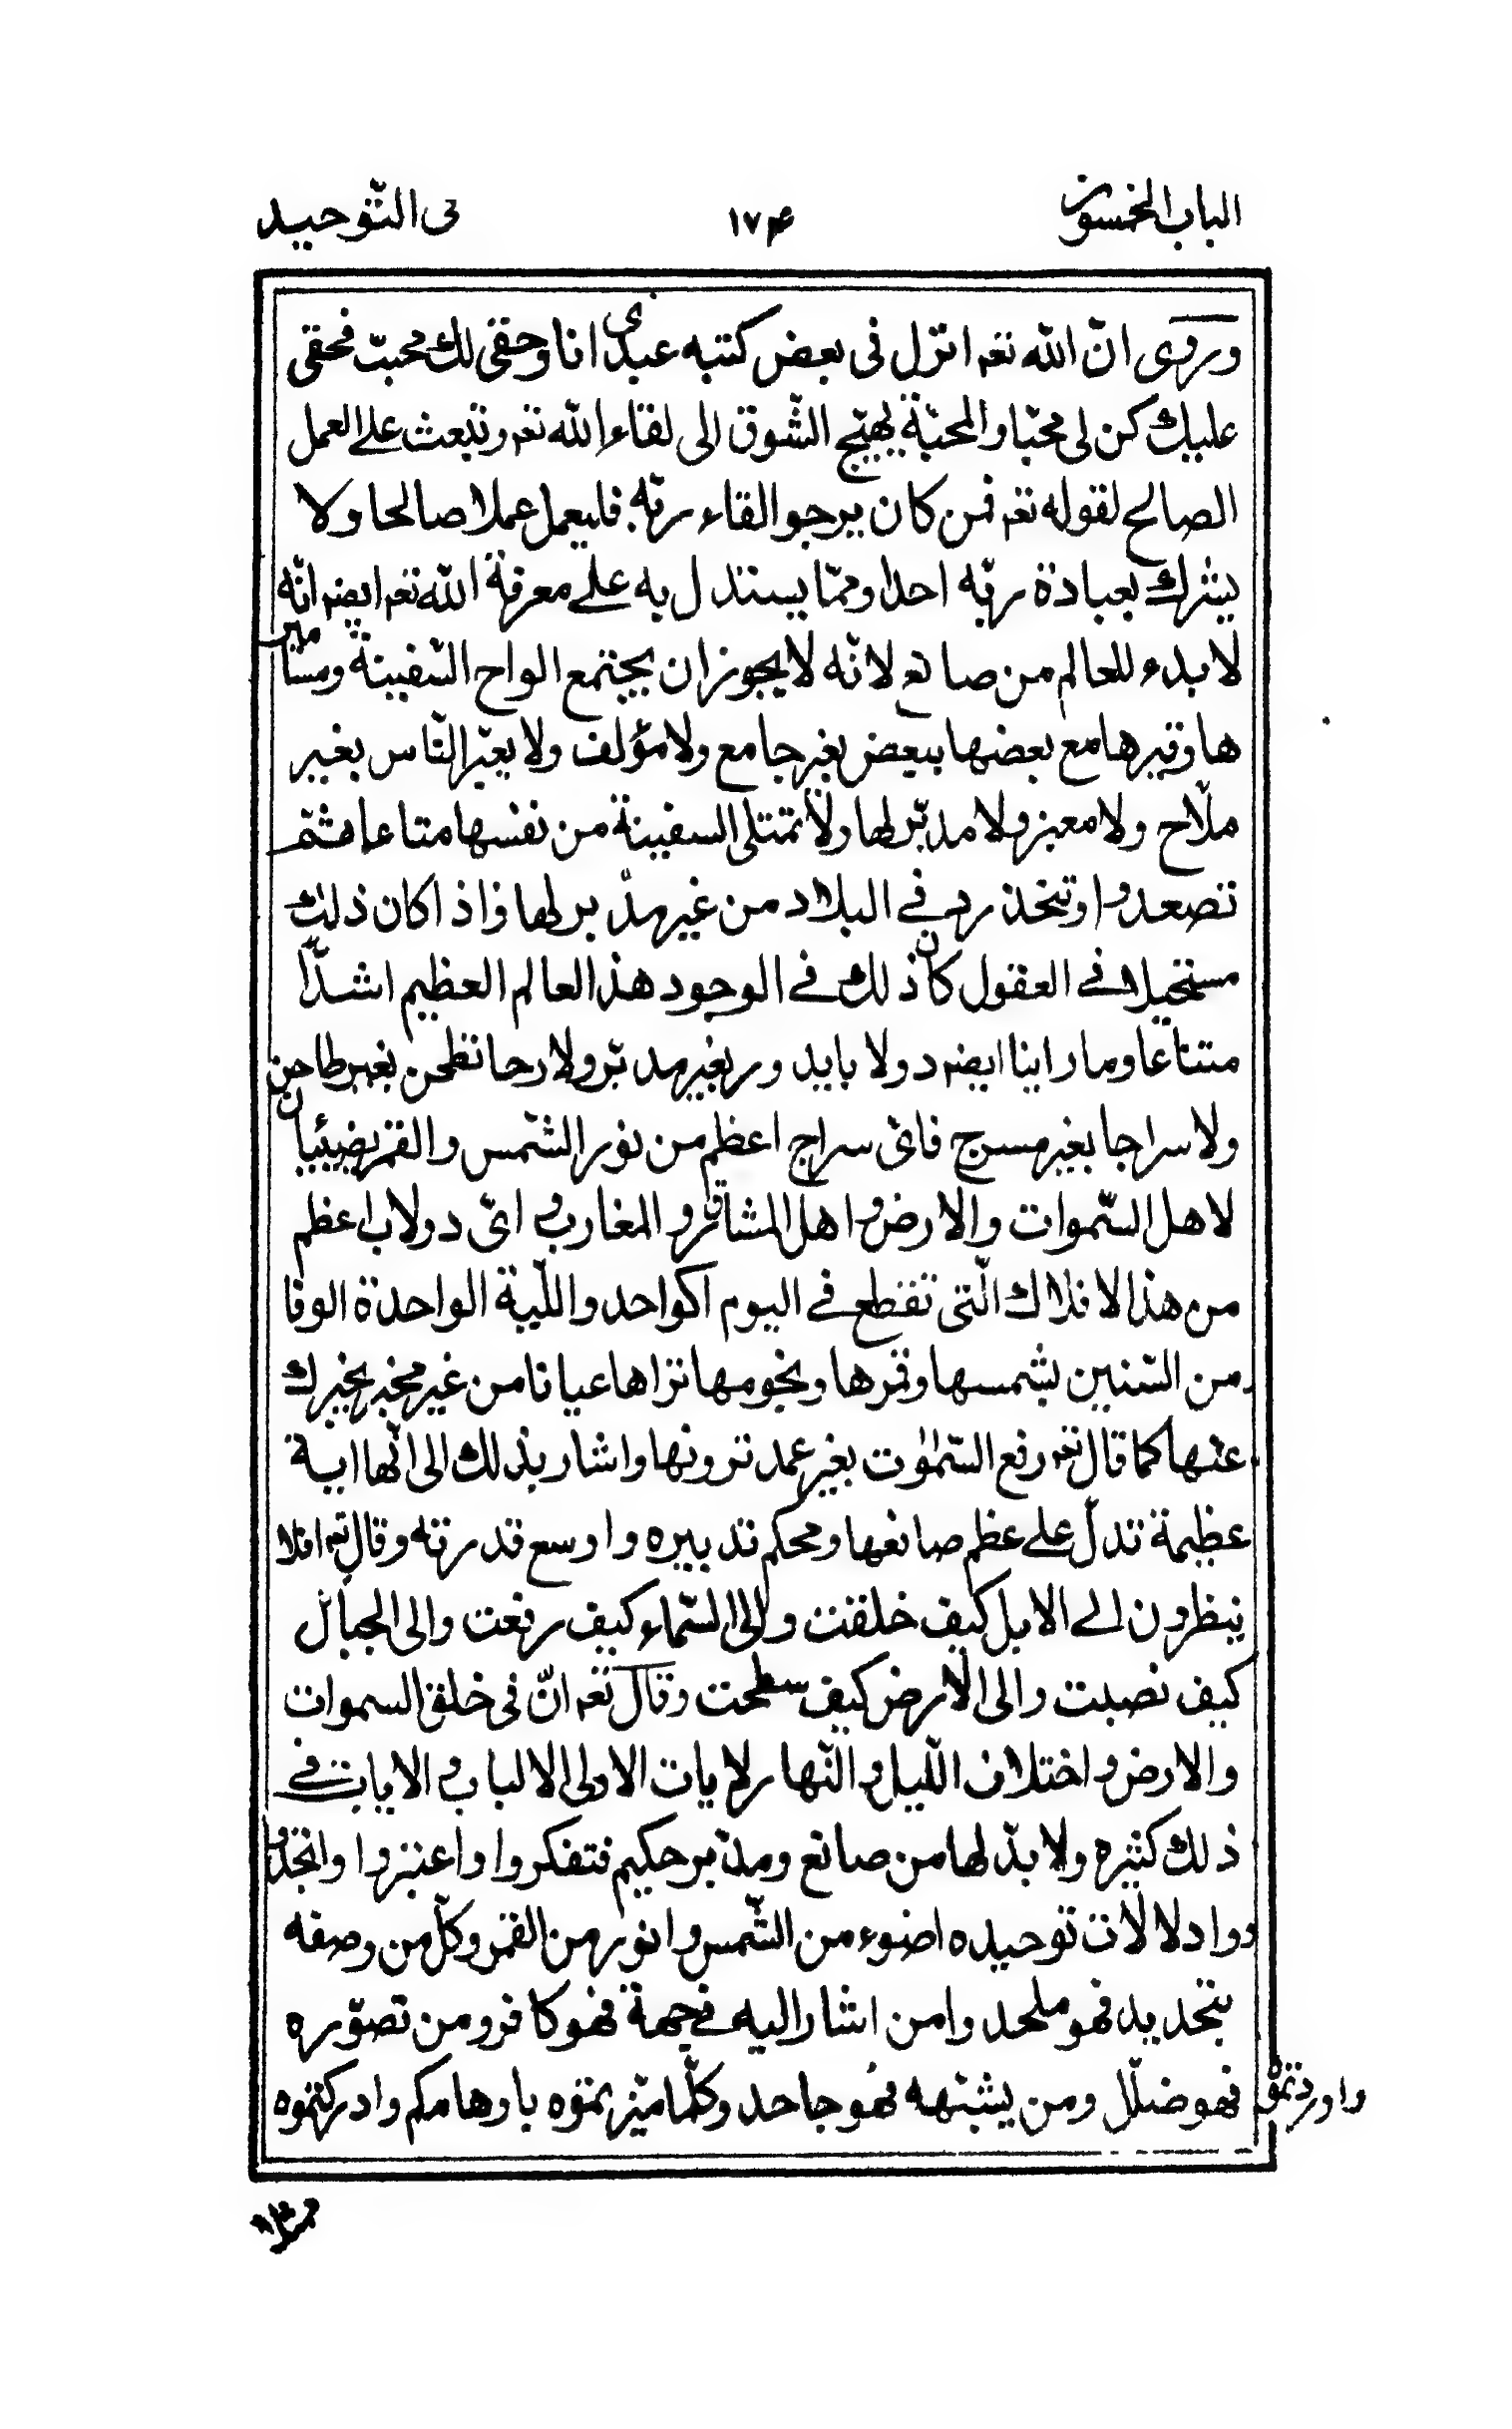 الباب الخمسون ١٧۴ فى التّوحيد
وروى انّ الله تعہ انزل فى بعض كتبه عبدى انا وحقى لك محبّ فبحقى
عليك كن لى محبّا والمحبّة يهيّج الشّوق الى لقاء الله تعہ وتبعث على العمل
الصالح لقوله تعہ فمن كان يرجوا لقاء ربّه فليعمل عملا صالحا ولا
يشرك بعبادة ربّه احدا وممّا يستدل به على معرفة الله تعہ ايضہ انّه
لا بدء للعالم من صانع لانّه لا يجوز ان يجتمع الواح السّفينة ومسامير
ها وقيرها مع بعضها ببعض بغير جامع ولا مؤلف ولا يعبّر النّاس بغير
ملّاح ولا معبر ولا مدبّر لها ولا تمتلى السفينة من نفسها متاعا ثمّ
تصعد وا وتتخذر فى البلاد من غير مدّبر لها فاذا كان ذلك
مستحيلا فى العقول كان ذلك فى الوجود هذا العالم العظيم اشدّ ا
متناعا وما راينا ايضہ دولا بايدور بغير مدبّر ولا رحا تطحن بغير طاحن
ولا سراجا بغير مسرج فاىّ سراج اعظم من نور الشّمس والقمر يضيئان
لاهل السّموات والارض واهل المشارق والمغارب واىّ دولاب اعظم
من هذا الافلاك الّتى تقطع فى اليوم الواحد واللّية الواحدة الوفا
من السّنين بشمسها وقمرها ونجومها تراها عيانا من غير مخبر يخبرك
عنها كما قال تعہ رفع السّمٰوٰت بغير عمد ترونها واشار بذلك الى انّها اية
عظيمة تدلّ على عظم صانعها ومحكم تدبيره واوسع قدرته وقال تعہ افلا
ينظرون الى الابل كيف خلقت والى السّماء كيف رفعت والى الجبال
كيف نصبت والى الارض كيف سطحت وقال تعہ انّ فى خلق السموات
والارض واختلاف اللّيل والنّهار لايات الاولى الالباب والايات فى
ذلك كثيره ولا بدّ لها من صانع ومدّبر حكيم فتفكروا واعتبروا واتخذ
دوا دلالات توحيده اضوء من الشّمس وانور من القمر وكلّ من وصفه
بتحديد فهو ملحد وامن اشار اليه فى جهة فهو كافر ومن تصوّره
فهو ضلّال ومن يشبّهه فهو جاحد وكلّما ميّزتموه باوهامكم وادركتموه